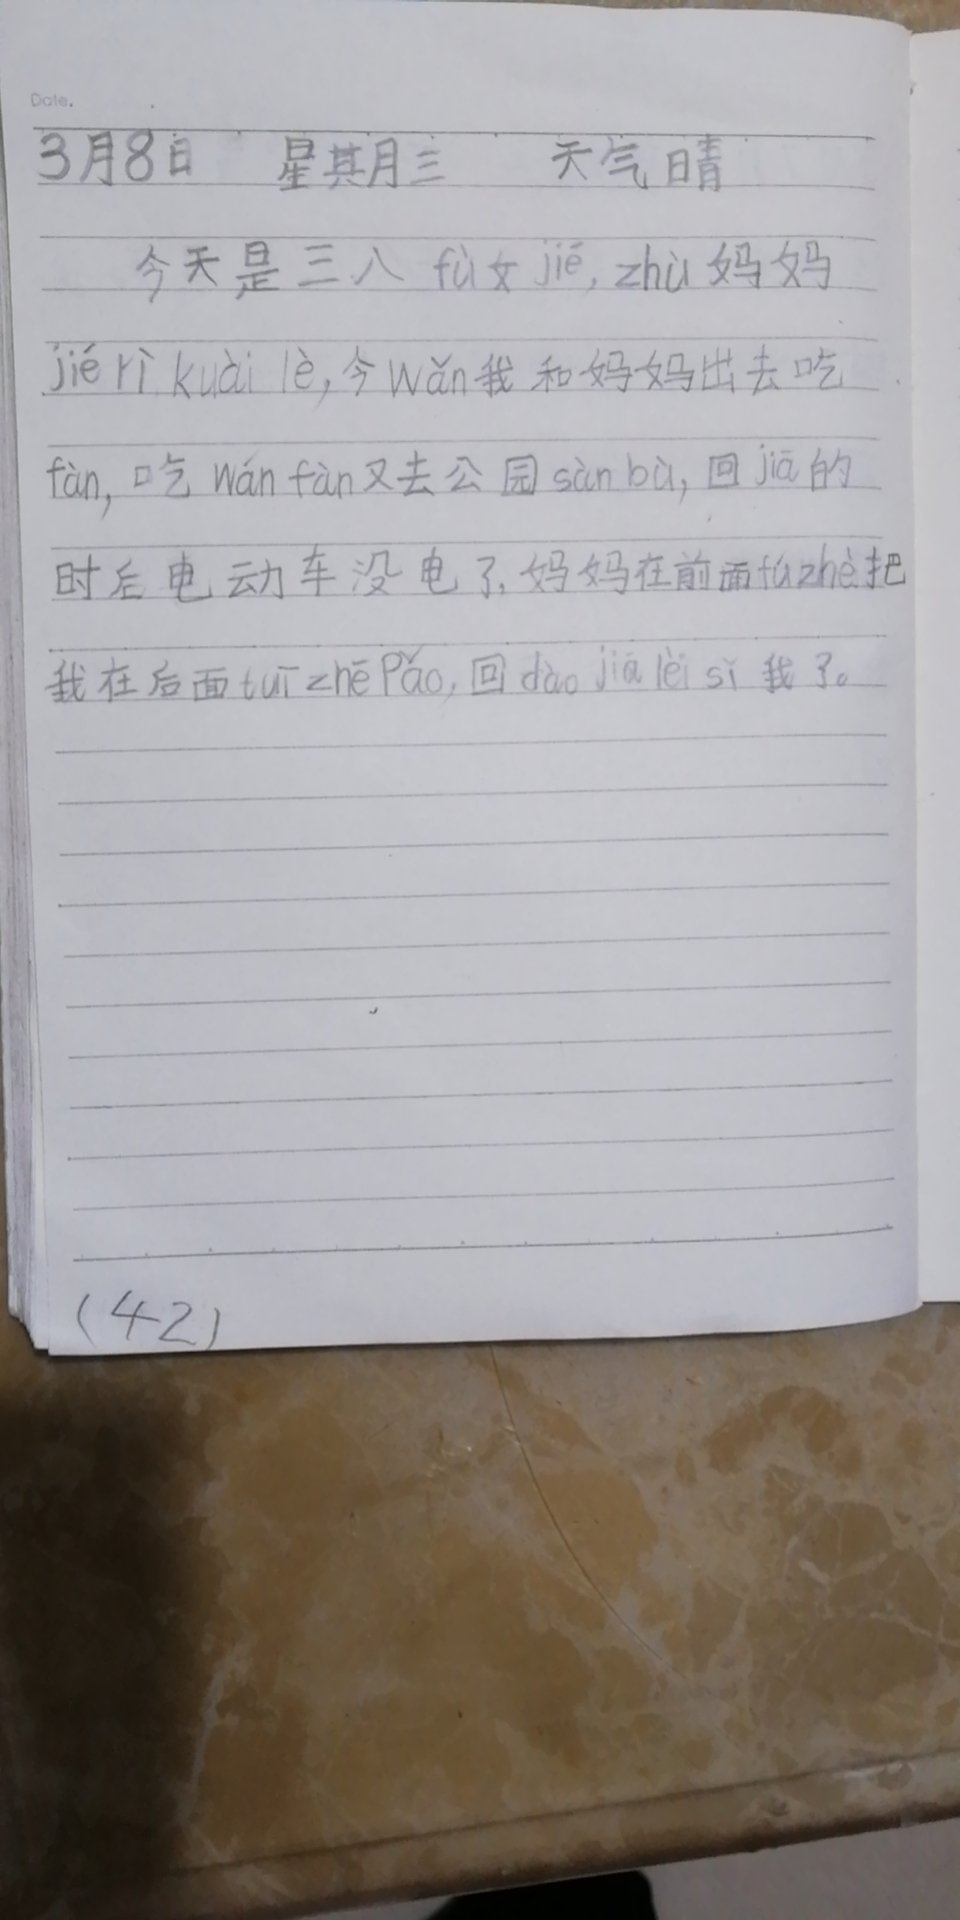 Date.
3月8日 星其月三 天气晴
今天是三八 fù女 jié, zhù 妈妈
jié rì kuài lè, 今 wǎn 我 和 妈妈出去吃
fàn, 吃 wán fàn 又去公园 sàn bù, 回 jiā 的
时后电动车没电了, 妈妈在前面 fú zhè 把
我在后面 tuī zhē Pǎo, 回 dào jiā lèi sǐ 我了。
(42)